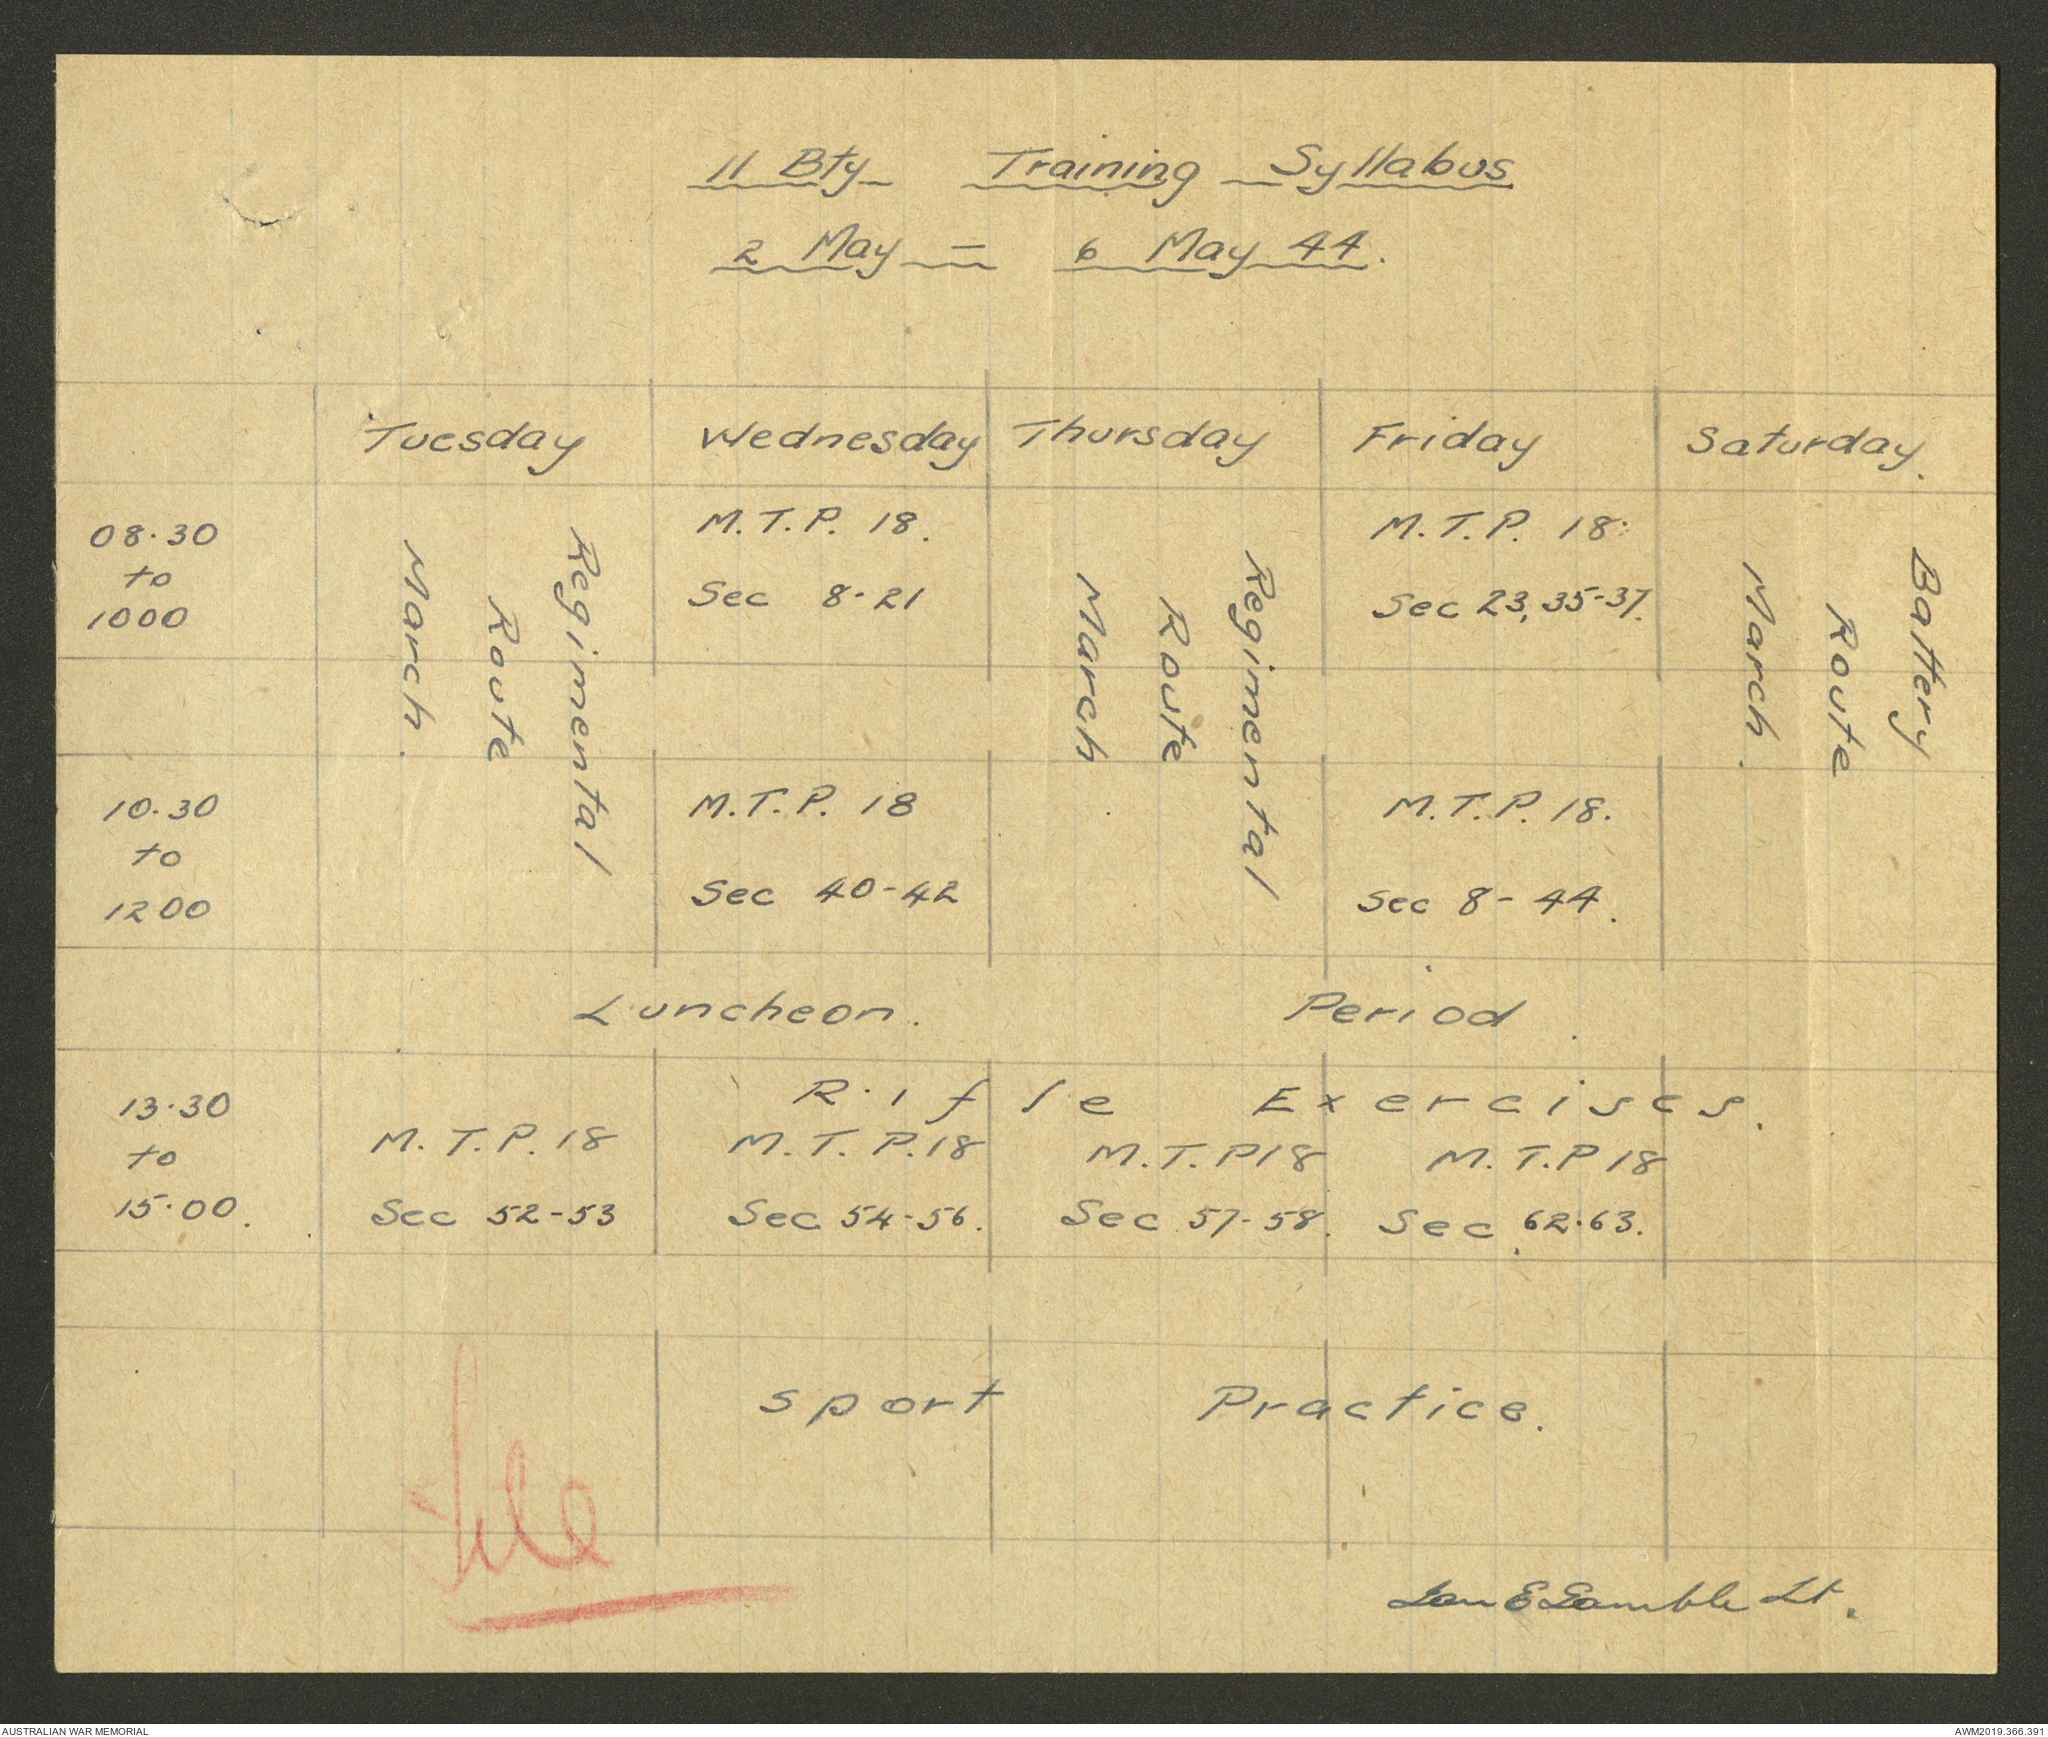 11 Bty Training Syllabus
2 May - 6 May 44.
Tuesday Wednesday Thursday Friday Saturday.
08.30
to
1000
Regimental
Route
March.
M.T.P. 18.
Sec 8-21
Regimental
Route
March.
M.T.P. 18.
Sec 23, 35-37.
Battery
Route
March.
10.30
to
1200
M.T.P. 18
Sec 40-42
M.T.P. 18.
Sec 8-44.
Luncheon. Period.
13.30
to
15.00.
Rifle Exercises.
M.T.P. 18 M.T.P. 18 M.T.P 18 M.T.P 18
Sec 52-53 Sec 54-56. Sec 57-58. Sec 62.63.
Sport Practice.
File
Gamble Lt.
AUSTRALIAN WAR MEMORIAL
AWM2019.366.391